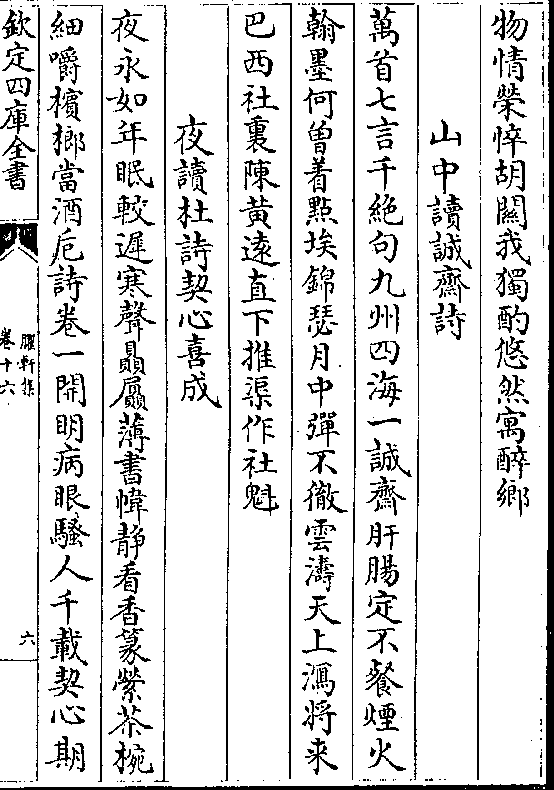 物情榮悴胡關我獨酌悠然寓醉鄉
山中讀誠齋詩
萬首七言千絶句九州四海一誠齋肝腸定不餐煙火
翰墨何曾着點埃錦瑟月中彈不徹雲濤天上瀉將来
巴西社裏陳黄逺直下推渠作社魁
夜讀杜詩契心喜成
夜永如年眠較遲寒聲贔屭薄書幃静看香篆縈茶椀
細嚼檳榔當酒巵詩卷一開明病眼騷人千載契心期
欽定四庫全書
臞軒集
卷十六
六